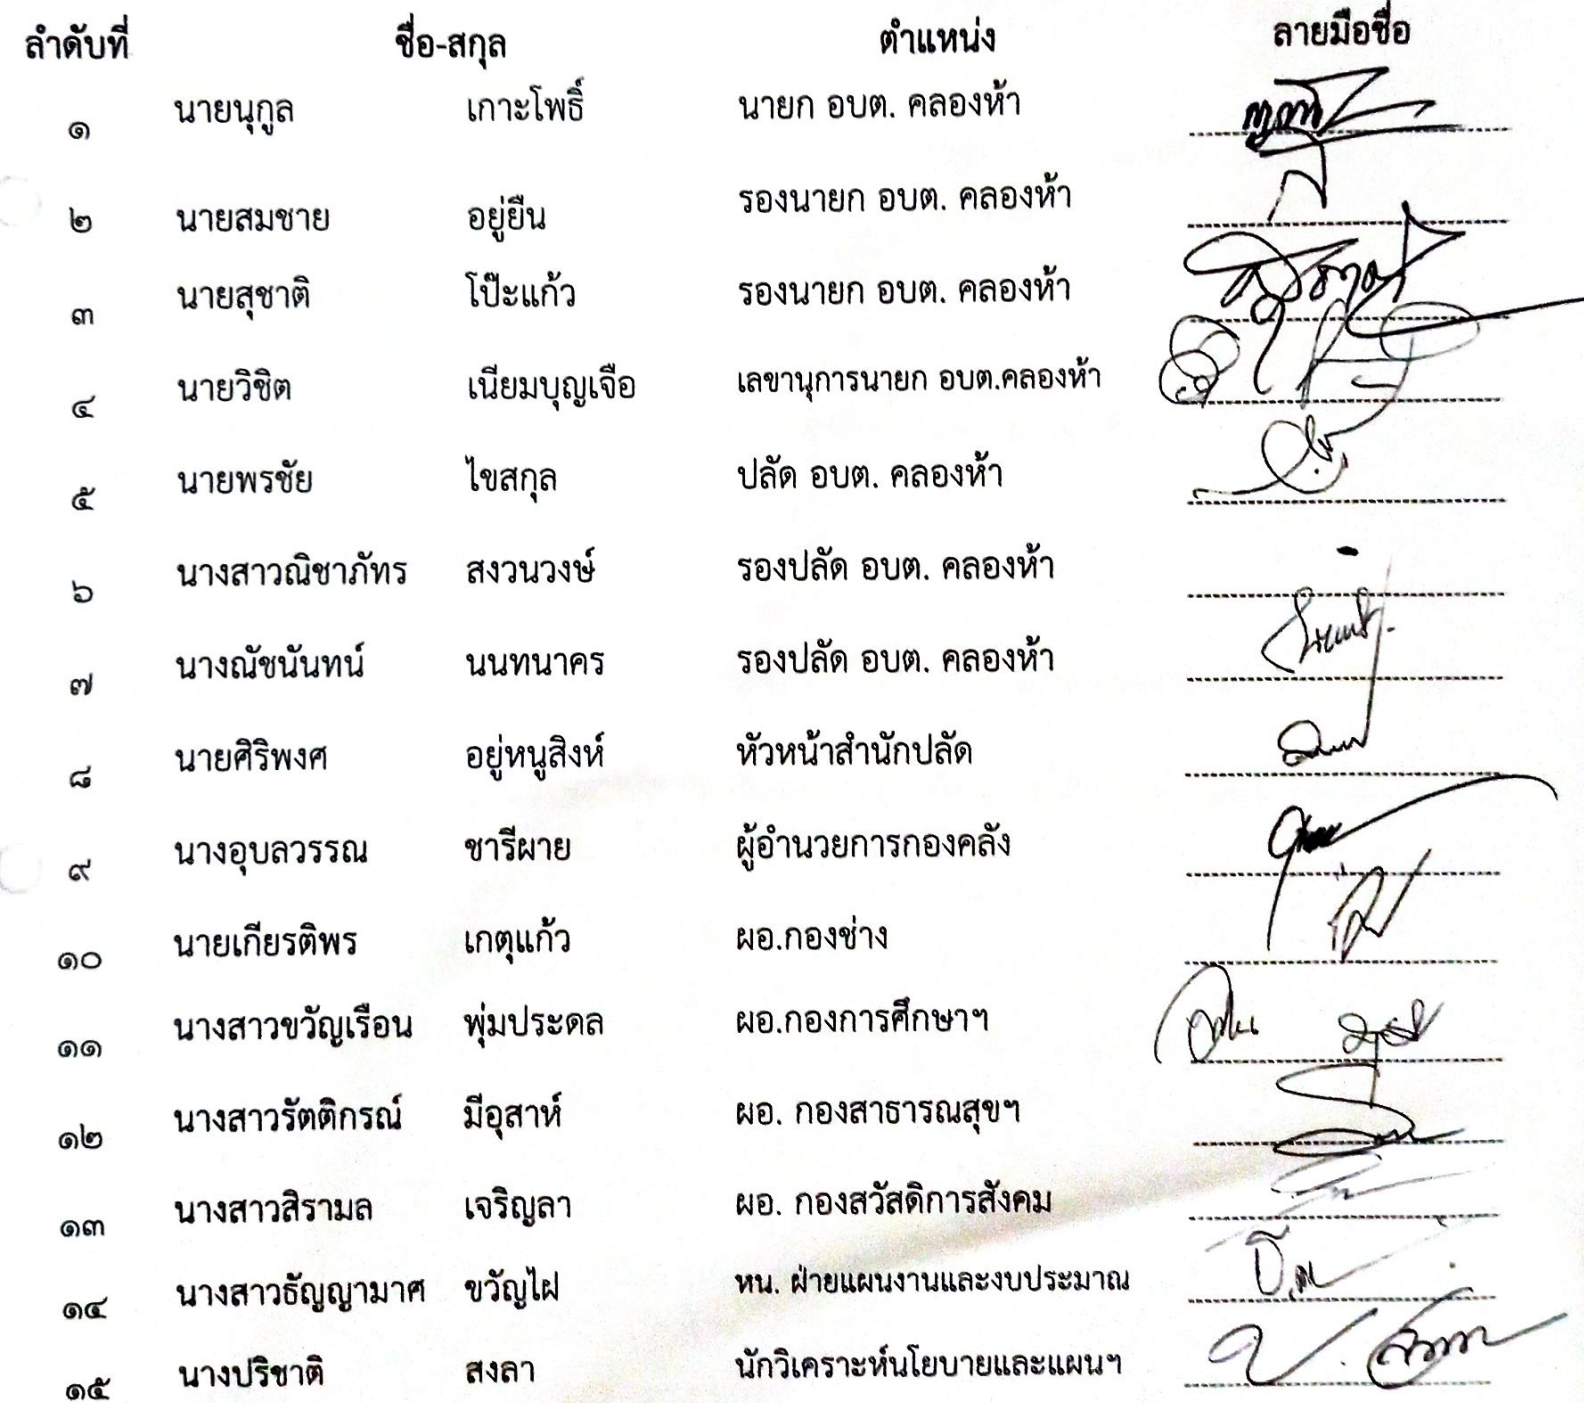 ลำดับที่ ชื่อ-สกุล ตำแหน่ง ลายมือชื่อ
๑ นายนุกูล เกาะโพธิ์ นายก อบต. คลองห้า
๒ นายสมชาย อยู่ยืน รองนายก อบต. คลองห้า
๓ นายสุชาติ โป๊ะแก้ว รองนายก อบต. คลองห้า
๔ นายวิชิต เนียมบุญเจือ เลขานุการนายก อบต.คลองห้า
๕ นายพรชัย ไขสกุล ปลัด อบต. คลองห้า
๖ นางสาวณิชาภัทร สงวนวงษ์ รองปลัด อบต. คลองห้า
๗ นางณัชนันทน์ นนทนาคร รองปลัด อบต. คลองห้า
๘ นายศิริพงศ อยู่หนูสิงห์ หัวหน้าสำนักปลัด
๙ นางอุบลวรรณ ชารีผาย ผู้อำนวยการกองคลัง
๑๐ นายเกียรติพร เกตุแก้ว ผอ.กองช่าง
๑๑ นางสาวขวัญเรือน พุ่มประดล ผอ.กองการศึกษาฯ
๑๒ นางสาวรัตติกรณ์ มีอุสาห์ ผอ. กองสาธารณสุขฯ
๑๓ นางสาวสิรามล เจริญลา ผอ. กองสวัสดิการสังคม
๑๔ นางสาวธัญญามาศ ขวัญไฝ หน. ฝ่ายแผนงานและงบประมาณ
๑๕ นางปริชาติ สงลา นักวิเคราะห์นโยบายและแผนฯ